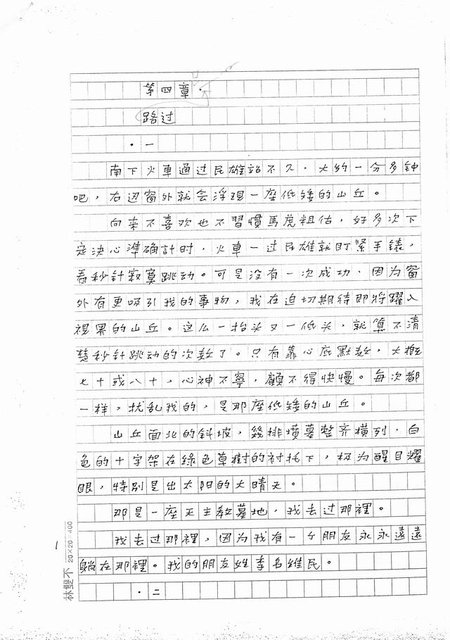 第四章·
路过
·一
南下火車通过民雄站不久，大約一分多鐘
吧，右边窗外就会浮現一座低矮的山丘。
向來不喜欢也不習慣馬虎粗估，好多次下
定決心準確計时，火車一过民雄就盯緊手錶，
看秒針數莫跳动。可是没有一次成功，因为窗
外有更吸引我的事物，我在迫切期待即將躍入
視界的山丘。这么一抬头又一低头，就算不清
楚秒針跳动的次数了。只有靠心底默数，大概
七十或八十，心神不寧，顧不得快慢。每次都
一样，扰乱我的，是那座低矮的山丘。
山丘面北的斜坡，幾排墳墓整齐橫列，白
色的十字架在綠色草樹的衬托下，极为醒目耀
眼，特別是出太阳的大晴天。
那是一座天主教墓地，我去过那裡。
我去过那裡，因为我有一个朋友永永遠遠
躺在那裡。我的朋友姓李名維民。
·二
1
林雙不 20×20 400